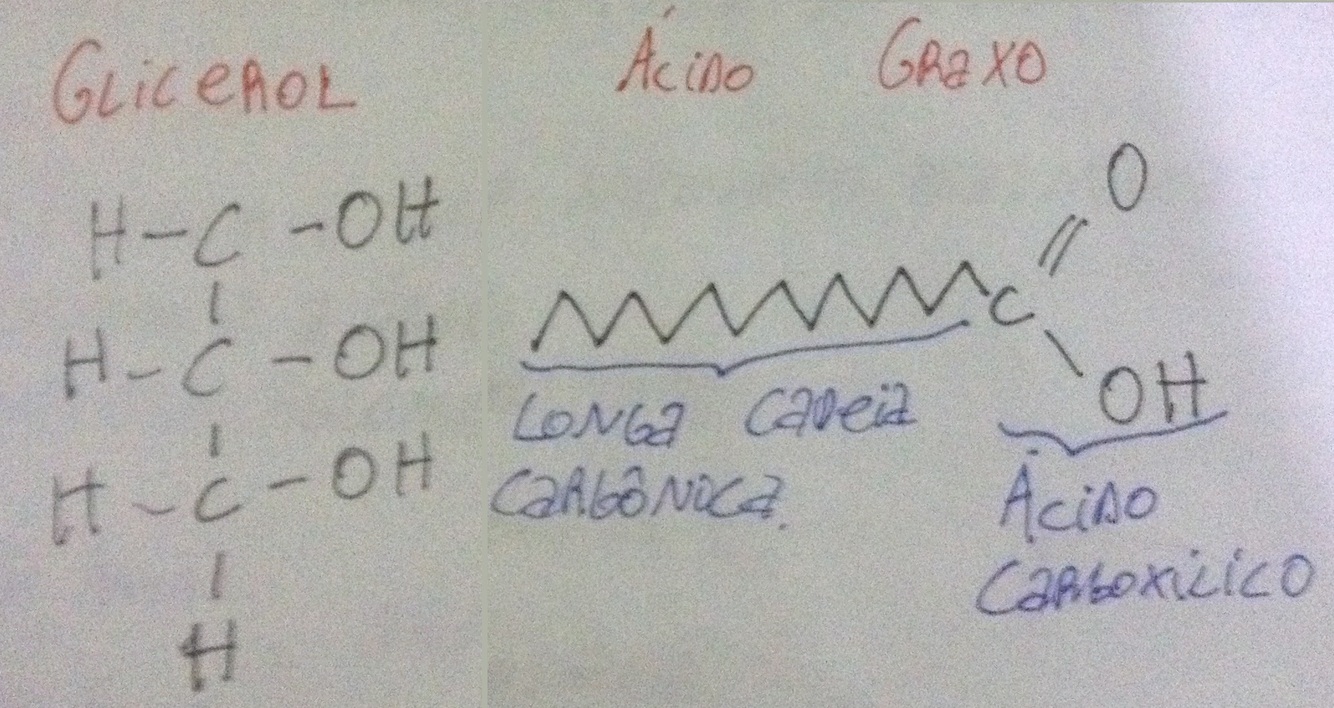 GLiceROL
H-C-OH
H-C-OH
H-C-OH
H
Áciдo GRaxo
O
C
OH
LoNGa caдeia
caRbôNica.
Áciдo
caRboxiLico